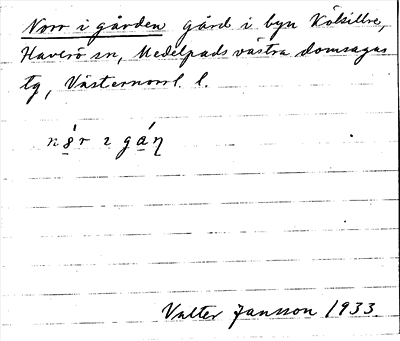 Norr i gården gård i byn Kölsillre,
Haverö sn, Medelpads västra domsagas
tg, Västernorrl. l.
Valter Jansson 1933.